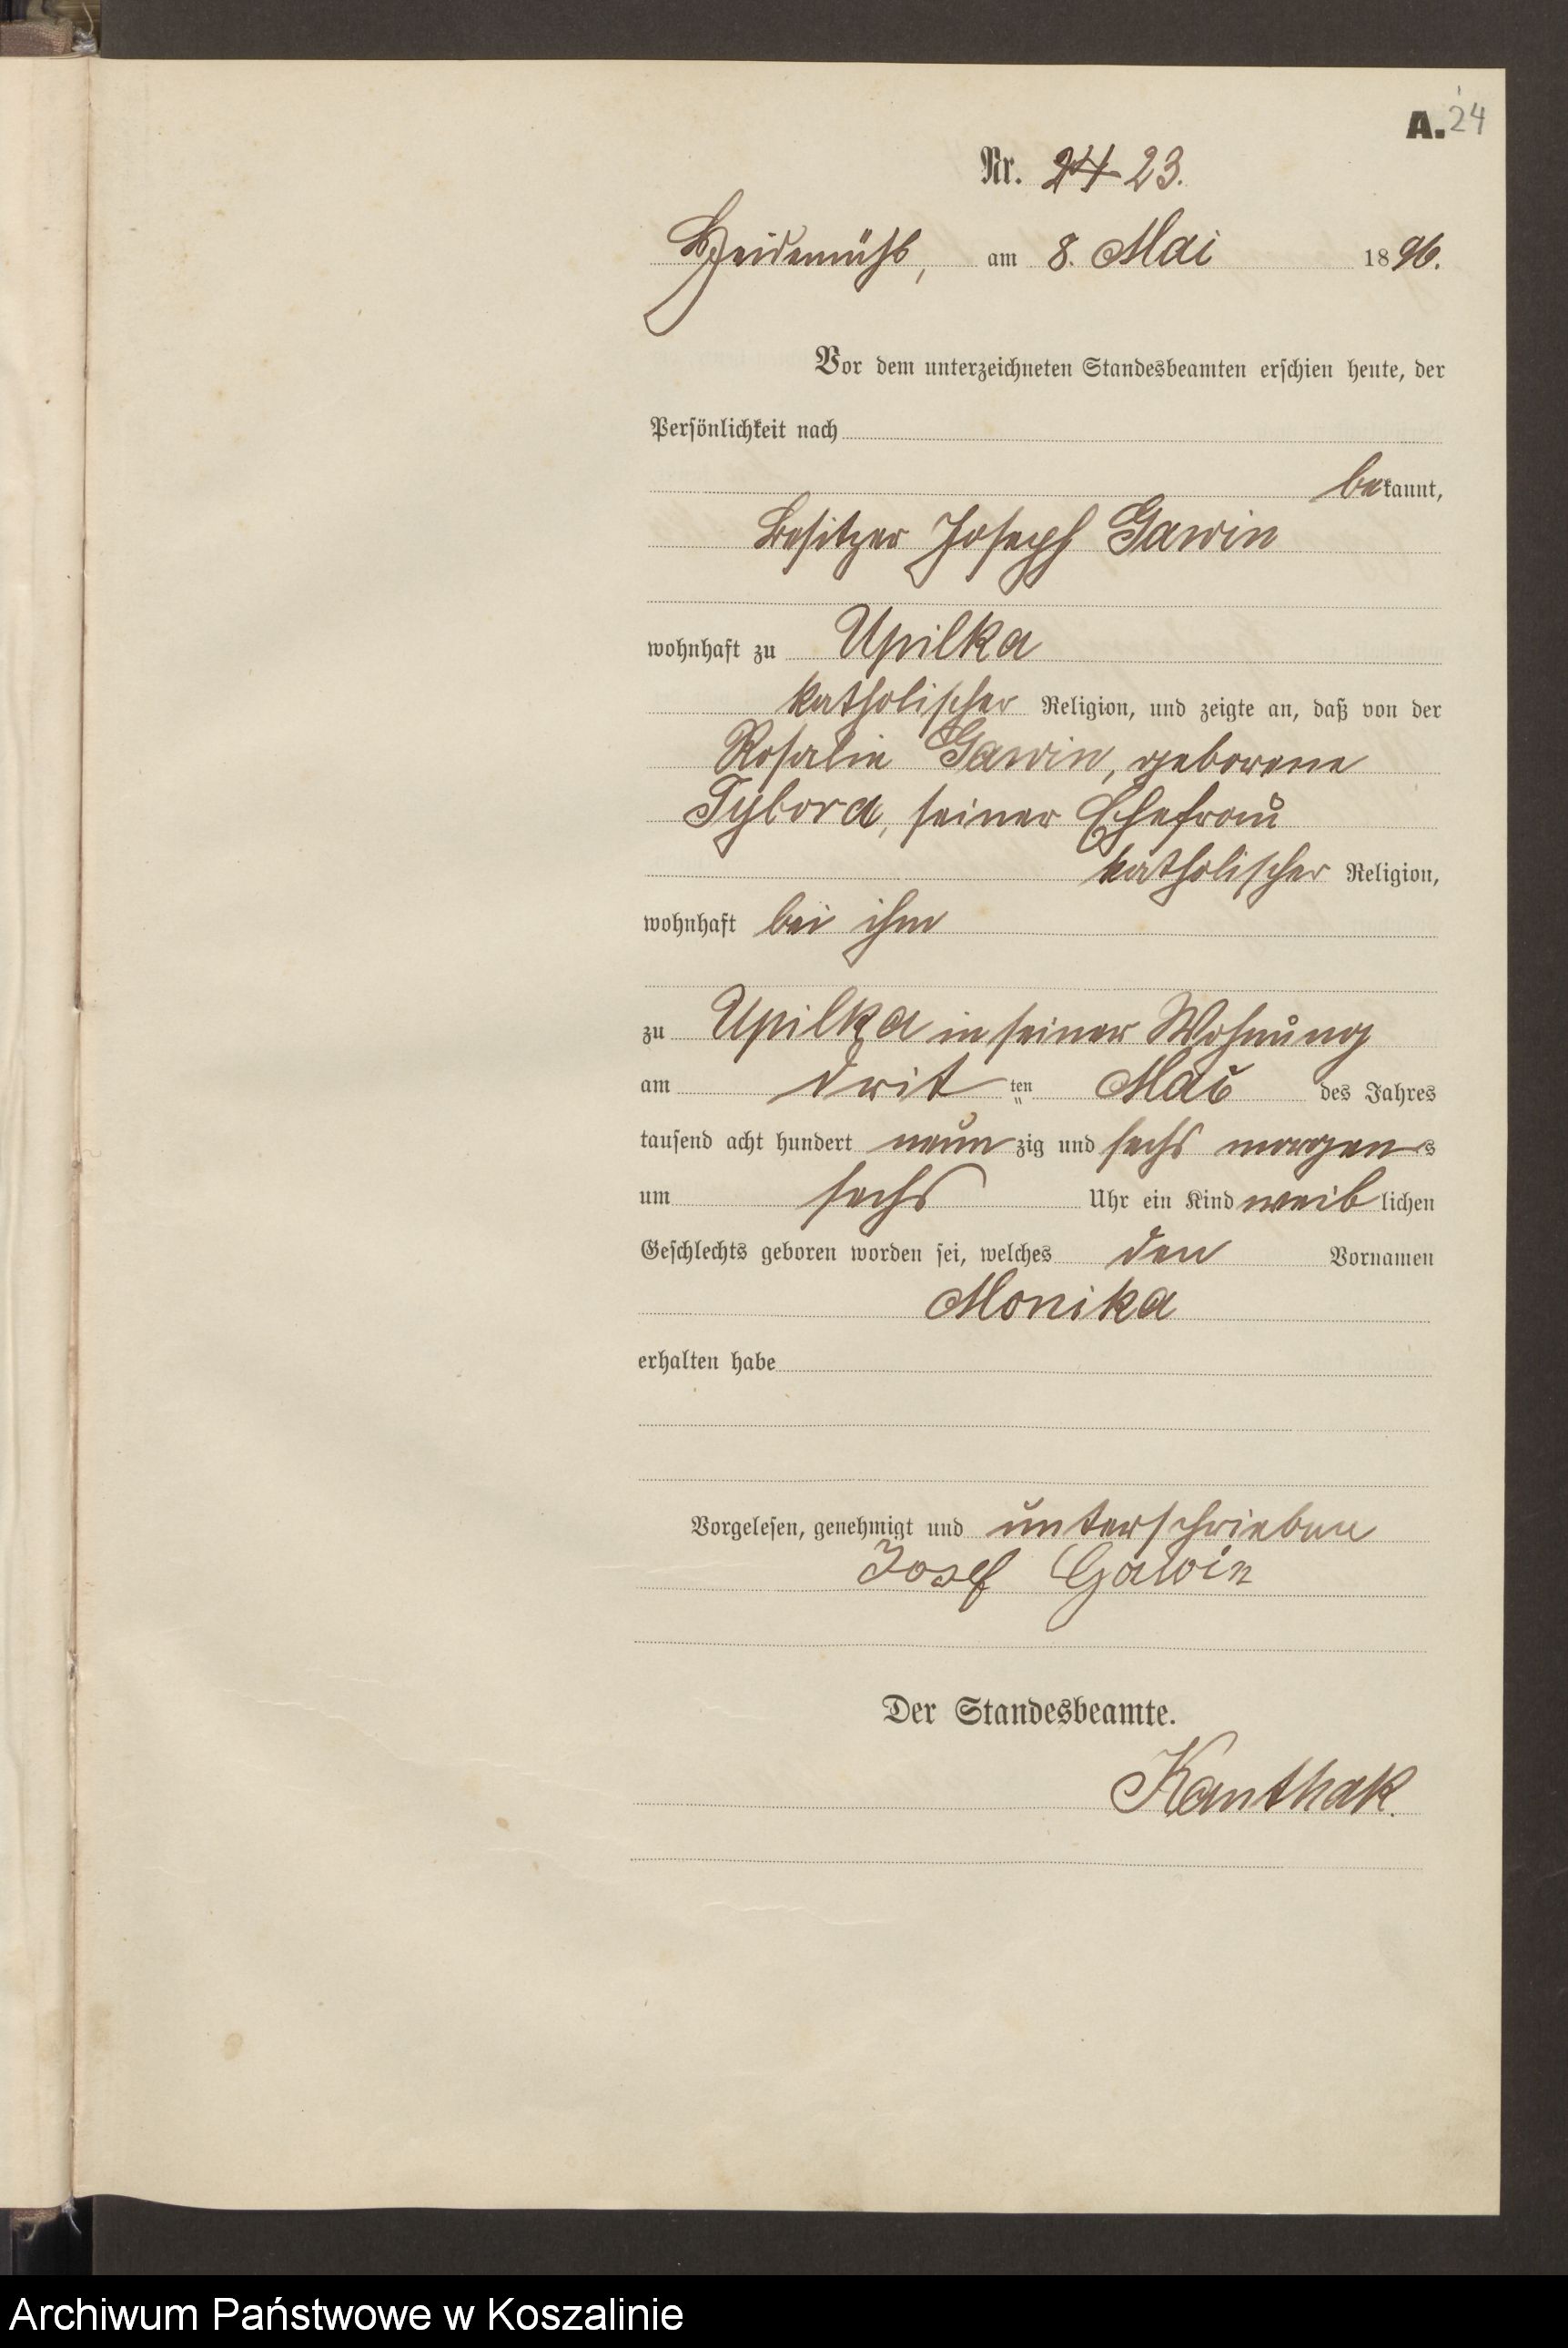 A. 24
Nr. 24 23.
Heidemühl, am 8. Mai 1896.
Vor dem unterzeichneten Standesbeamten erschien heute, der
Persönlichkeit nach
bekannt,
Besitzer Joseph Gawin
wohnhaft zu Upilka
katholischer Religion, und zeigte an, daß von der
Rosalie Gawin, geborene
Tybora, seiner Ehefrau
katholischer Religion,
wohnhaft bei ihm
zu Upilka in seiner Wohnung
am dritten Mai des Jahres
tausend acht hundert neunzig und sechs morgens
um sechs Uhr ein Kind weiblichen
Geschlechts geboren worden sei, welches den Vornamen
Monika
erhalten habe
Vorgelesen, genehmigt und unterschrieben
Josef Gawin
Der Standesbeamte.
Kanthak.
Archiwum Państwowe w Koszalinie